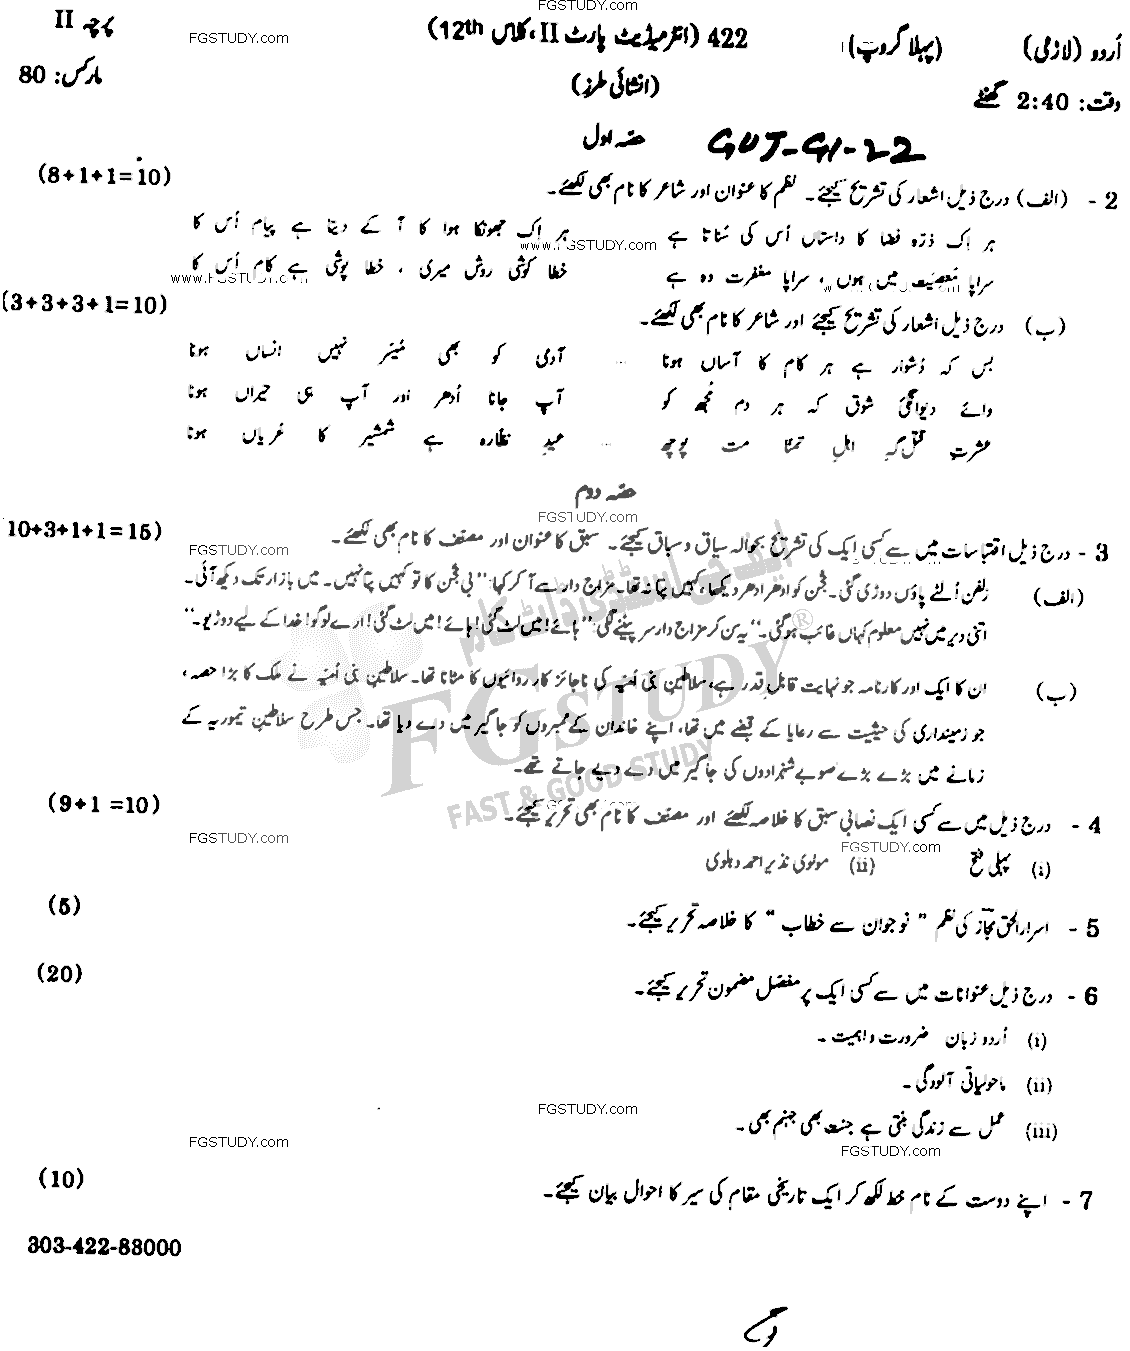 FGSTUDY.com
اُردو (لازمی) (پہلا گروپ) 422 (انٹرمیڈیٹ پارٹ II، کلاس 12th) پرچہ II
FGSTUDY.com
وقت: 2:40 گھنٹے (انشائی طرز) مارکس: 80
حصہ اول GUJ-G1-22
2 - (الف) درج ذیل اشعار کی تشریح کیجئے۔ نظم کا عنوان اور شاعر کا نام بھی لکھئے۔ (8+1+1=10)
ہر اک ذرّہ فضا کا داستاں اُس کی سُناتا ہے ہر اِک جھونکا ہوا کا آ کے دیتا ہے پیام اُس کا
www.FGSTUDY.com
سراپا مَعصِیَت میں ہوں، سراپا مغفرت وہ ہے خطا کوشی روش میری، خطا پوشی ہے کام اُس کا
www.FGSTUDY.com
(ب) درج ذیل اشعار کی تشریح کیجئے اور شاعر کا نام بھی لکھئے۔ (3+3+3+1=10)
بس کہ دُشوار ہے ہر کام کا آساں ہونا ... آدمی کو بھی مُیسّر نہیں انساں ہونا
وائے دیوانگیٔ شوق کہ ہر دم مُجھ کو آپ جانا اُدھر اور آپ ہی حیراں ہونا
عشرتِ قتل گہِ اہلِ تمنّا مت پوچھ ... عیدِ نظّارہ ہے شمشیر کا عُریاں ہونا
حصہ دوم
FGSTUDY.com
3 - درج ذیل اقتباسات میں سے کسی ایک کی تشریح بحوالہ سیاق و سباق کیجئے۔ سبق کا عنوان اور مصنف کا نام بھی لکھئے۔ 10+3+1+1=15)
FGSTUDY.com
(الف) زلفن اُلٹے پاؤں دوڑی گئی۔ فجن کو ادھر ادھر دیکھا، کہیں پتا نہ تھا۔ مزاج دار سے آ کر کہا: "بی فجن کا تو کہیں پتا نہیں۔ میں بازار تک دیکھ آئی۔
اتنی دیر میں نہیں معلوم کہاں غائب ہو گئی۔" یہ سن کر مزاج دار سر پیٹنے لگی: "ہائے! میں لٹ گئی! ہائے! میں لٹ گئی! ارے لوگو! خدا کے لیے دوڑیو۔"
(ب) ان کا ایک اور کارنامہ جو نہایت قابلِ قدر ہے، سلاطین بنی اُمیّہ کی ناجائز کارروائیوں کا مٹانا تھا۔ سلاطینِ بنی اُمیّہ نے ملک کا بڑا حصہ،
جو زمینداری کی حیثیت سے رعایا کے قبضے میں تھا، اپنے خاندان کے ممبروں کو جاگیر میں دے دیا تھا۔ جس طرح سلاطینِ تیموریہ کے
زمانے میں بڑے بڑے صوبے شہزادوں کی جاگیر میں دے دیے جاتے تھے۔
ایف جی اسٹڈی ڈاٹ کام
FGSTUDY®
FAST & GOOD STUDY
4 - درج ذیل میں سے کسی ایک نصابی سبق کا خلاصہ لکھئے اور مصنف کا نام بھی تحریر کیجئے۔ (9+1=10)
FGSTUDY.com
FGSTUDY.com
(i) پہلی فتح (ii) مولوی نذیر احمد دہلوی
5 - اسرار الحق مجازؔ کی نظم "نوجوان سے خطاب" کا خلاصہ تحریر کیجئے۔ (5)
6 - درج ذیل عنوانات میں سے کسی ایک پر مفصّل مضمون تحریر کیجئے۔ (20)
(i) اُردو زبان ضرورت و اہمیت۔
(ii) ماحولیاتی آلودگی۔
FGSTUDY.com
(iii) عمل سے زندگی بنتی ہے جنت بھی جہنم بھی۔
FGSTUDY.com
FGSTUDY.com
7 - اپنے دوست کے نام خط لکھ کر ایک تاریخی مقام کی سیر کا احوال بیان کیجئے۔ (10)
303-422-88000